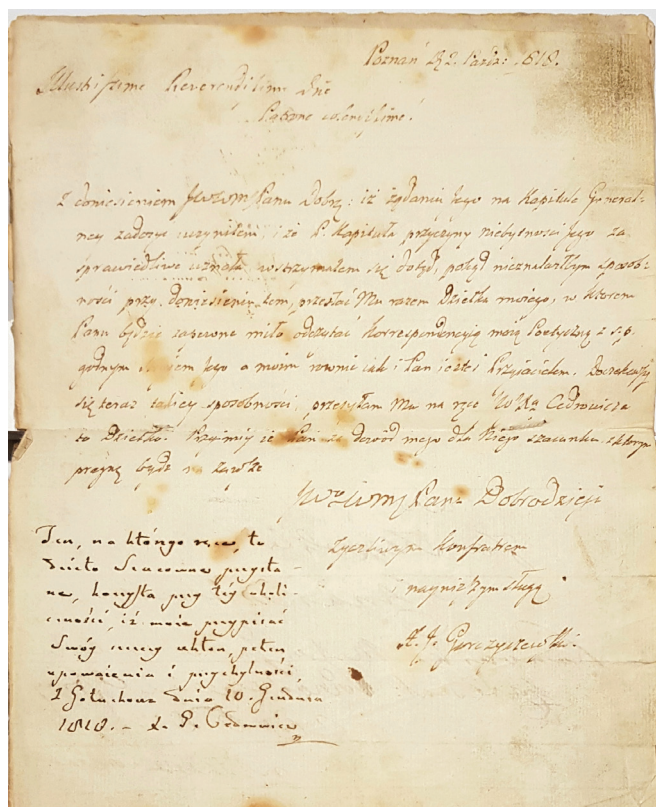 Poznań d. 2. Paźdz: 1818.
Illustrissime Reverendissime Dne
Patrone colendissime!
Z doniesieniem JWWMPanu Dobrz: iż żądaniu Jego na Kapitule General-
ney zadosyć uczyniłem, i że P. Kapituła przyczyny niebytności Jego za
sprawiedliwe uznała, wstrzymałem się dotąd, pokąd nieznalazłbym sposob-
ności przy doniesieniu tem, przesłać Mu razem Dziełka mojego, w którem
Panu będzie zapewne miło odczytać Korrespondencyją moię Poetyczną z ś. p.
godnym Jego a moim równie jak i Pan jesteś Przyjacielem. Doczekawszy
się teraz takiey sposobności, przesyłam Mu na ręce WXa Cedrowicza
to Dziełko. Przyimiy je Pan za dowód mego dla Niego szacunku z którym
pragnę bydź na zawsze
JWWMPana Dobrodzieja
życzliwym Konfratrem
i nayniższym sługą
A. J. Gorczyczewski.
Ten, na którego ręce, to
dzieło Szacowne przysła-
ne, korzysta przy téy okoli-
czności, iż może przypisać
Swóy ukłon, pełen
upoważenia i przychylności,
z Gołuchowa dnia 10. Grudnia
1818. – X. P. Cedrowicz